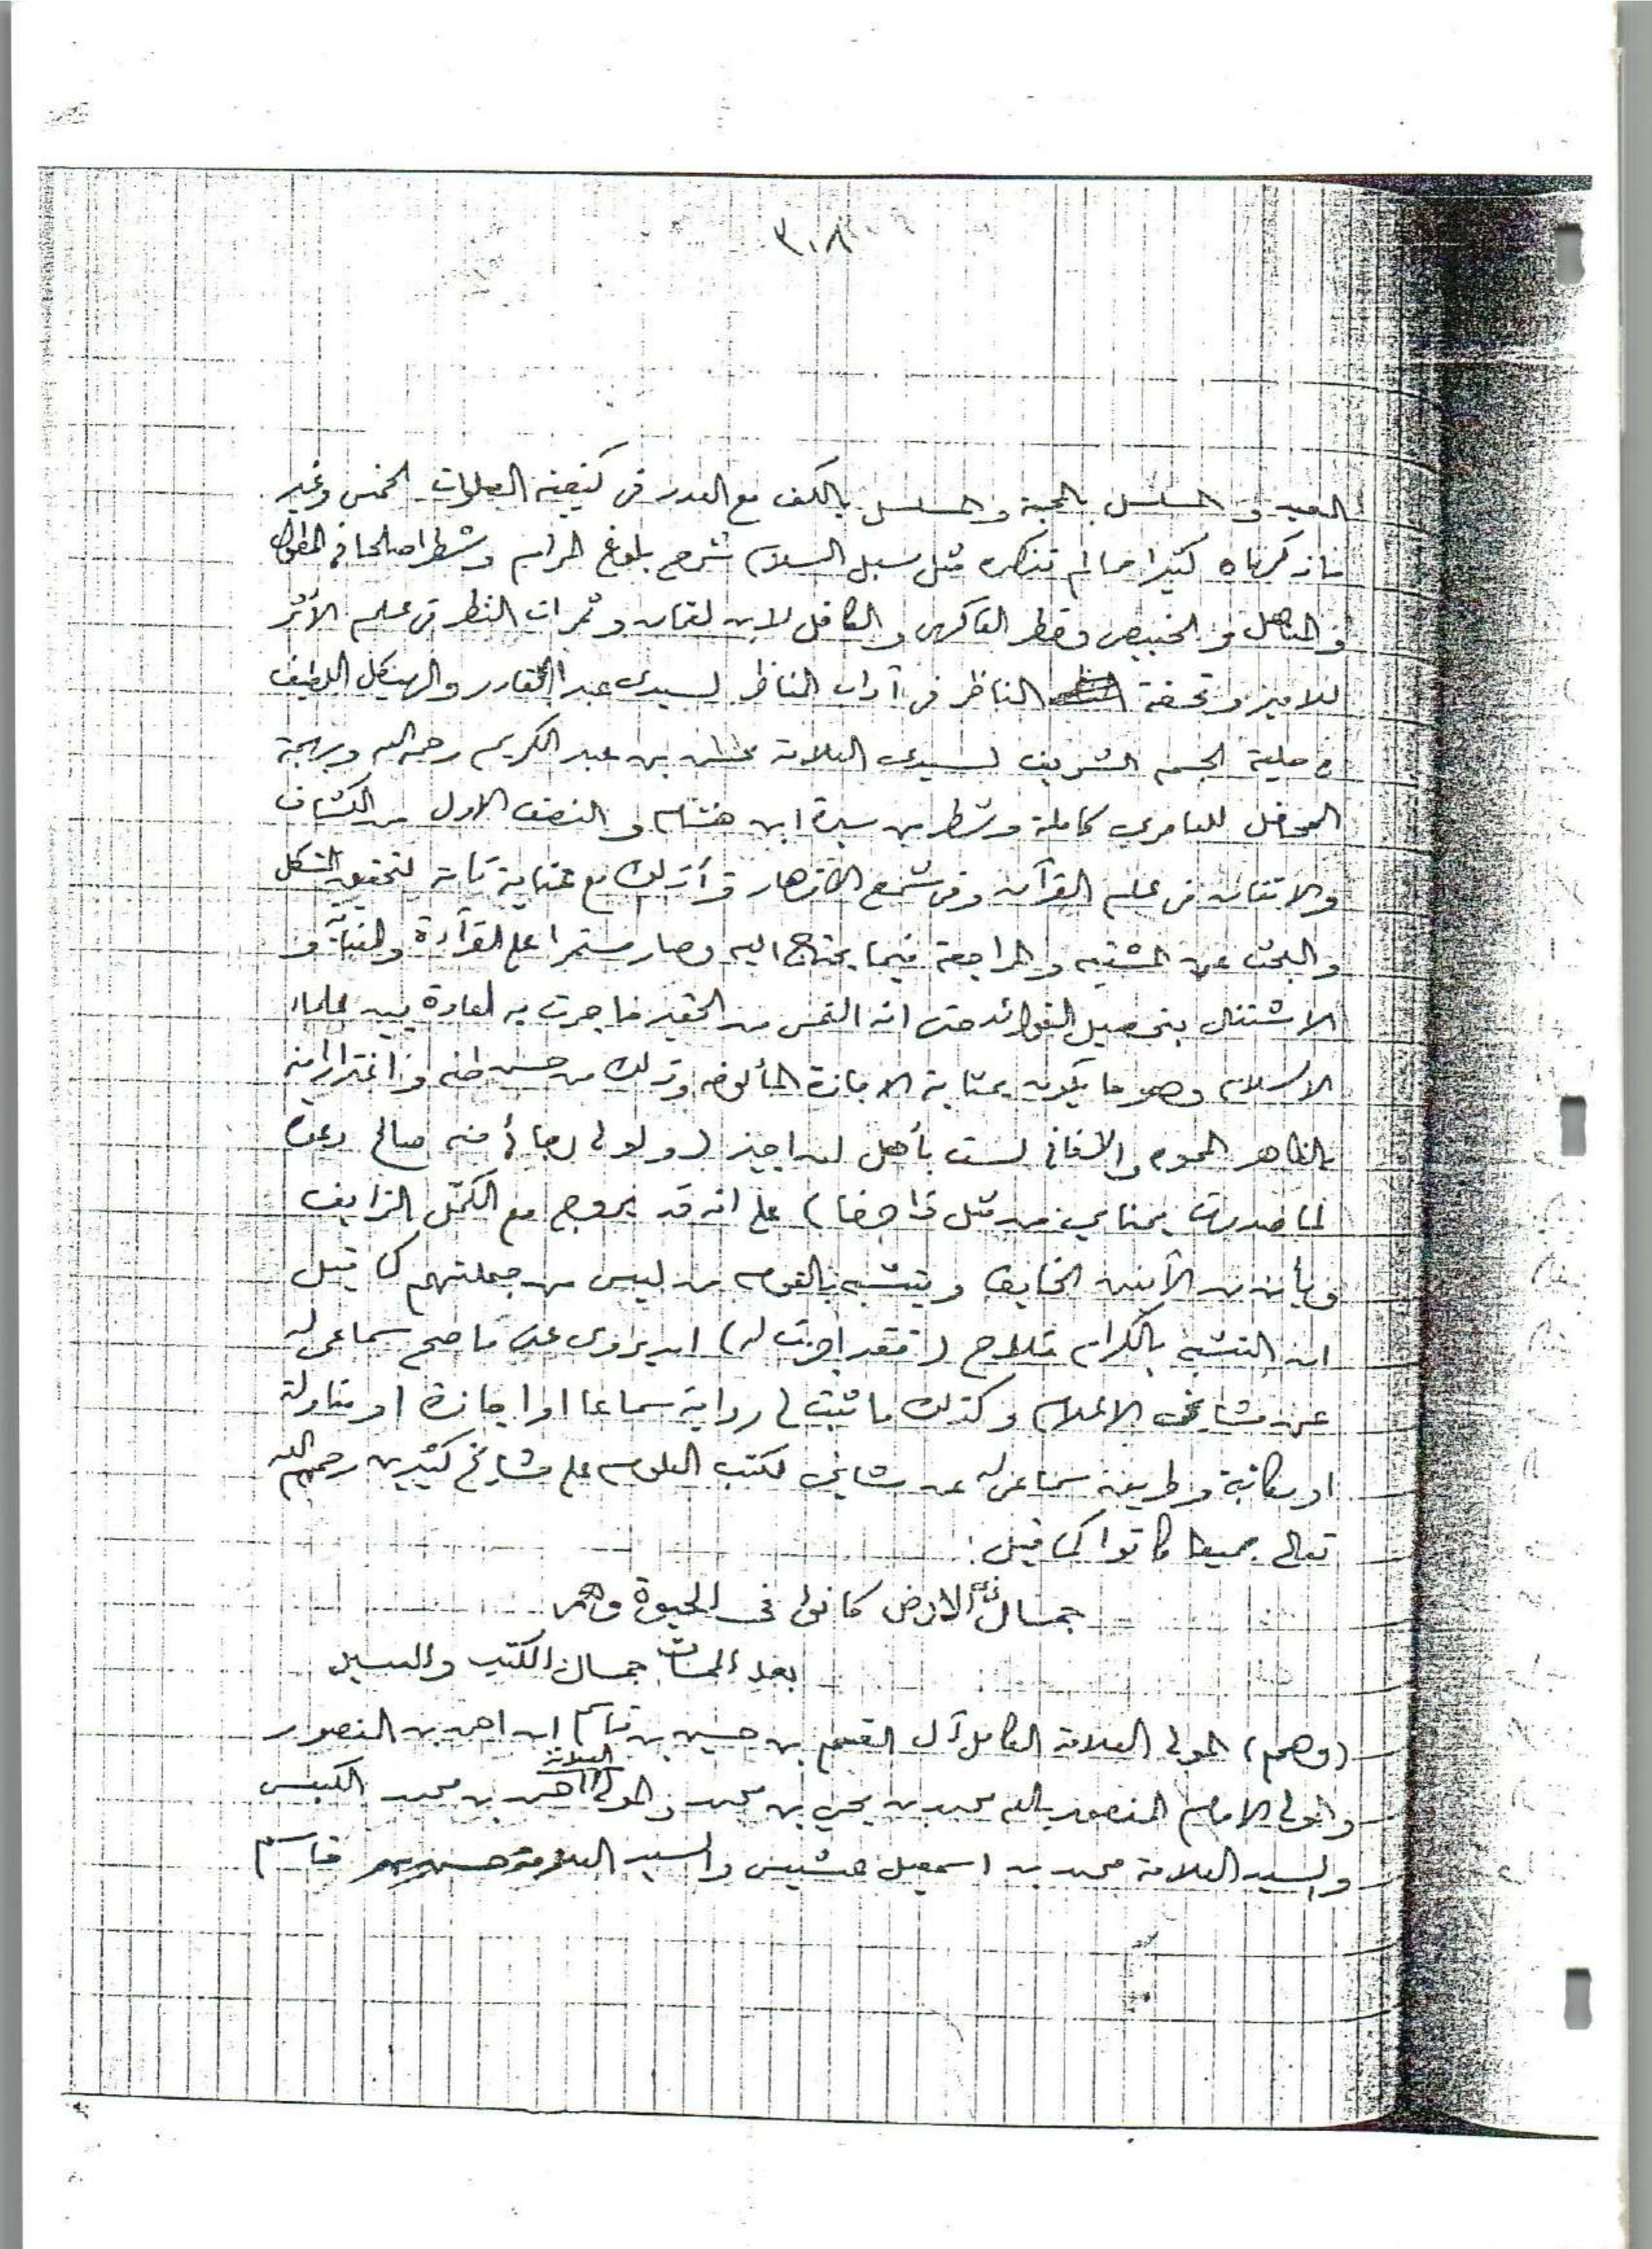 ٣٠٨
العيد والمسلسل بالمحبة والمسلسل بالكف مع العدد في كيفية الصلوات الخمس وغير
ما ذكرناه كثيرا مما لم نذكره مثل سبل السلام شرح بلوغ المرام وشطرا صالحا في المطول
و المناهل و الخبيصي وقطر الفاكهي والكافل لابن لقمان وثمرات النظر في علم الأثر
للامير وتحفة الناظر في آداب المناظر لسيدي عبد القادر والهيكل اللطيف
في حلية الجسم الشريف لسيدي العلامة محسن بن عبد الكريم رحمه الله وبهجة
المحافل للعامري كاملة وشطر من سيرة ابن هشام و النصف الاول من الكشاف
والاتقان في علم القرآن وفي شمع الازهار قرأ ذلك مع عناية تامة لتحقيق المشكل
والبحث عن المشتبه والمراجعة فيما يحتاج اليه وصار مستمرا على القرآءة و
الاشتغال بتحصيل الفوائد حتى انه التمس من الحقير ما جرت به العادة بين علماء
الاسلام وهو ما يكون بمثابة الاجازة المألوفه وذلك من حسن ظنه و اغترارا منه
بالظاهر المموه والا فاني لست بأهل لان اجيز (ولولا رجائي منه صالح دعوة
لما صدرت يمناي من مثل ذا حرفا) على انه قد يروج مع الكمّل الزايف
ويأمن من الآمنين الخايف ويتشبه بالقوم من ليس من جملتهم كما قيل
ان التشبه بالكرام فلاح (فقد اجزت له) ان يروي عني ما صح سماعي له
عن مشائخي الاعلام وكذلك ما ثبت لي رواية سماعا او اجازة او مناولة
او مكاتبة وطريقة سماعي له عن مشايخي لكتب العلوم على مشايخ كثيرين رحمهم الله
تعالى جميعا كانوا كما قيل:
جمال ذي الارض كانوا في الحيوة وهم
بعد الممات جمال الكتب والسير
(وهم) المولى العلامة الكامل آل القسم بن حسين بن قاسم ابن احمد بن المنصور
والمولى الامام المنصور بالله محمد بن يحيى بن محمد والمولى العلامة احمد بن محمد الكبسي
والسيد العلامة محمد بن اسمعيل عشيش والسيد العلامة قاسم